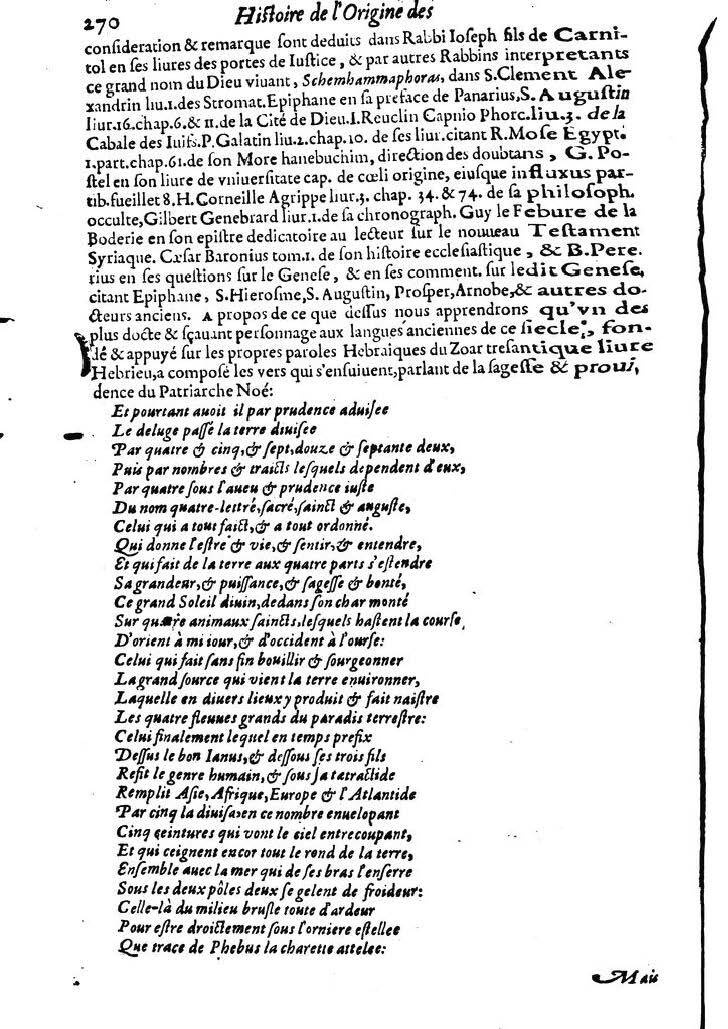 270 Hiſtoire de l'Origine des
conſideration & remarque ſont deduits dans Rabbi Ioſeph fils de Carni-
tol en ſes liures des portes de Iuſtice, & par autres Rabbins interpretants
ce grand nom du Dieu viuant, Schemhammaphoras, dans S.Clement Ale-
xandrin liu.1.des Stromat.Epiphane en ſa preface de Panarius,S. Auguſtin
liur.16.chap.6.& 11.de la Cité de Dieu.I.Reuclin Capnio Phorc.liu.3. de la
Cabale des Iuifs.P.Galatin liu.2.chap.10. de ſes liur.citant R.Moſe Egypt.
1.part.chap.61.de ſon More hanebuchim, direction des doubtans, G. Po-
ſtel en ſon liure de vniuerſitate cap. de cœli origine, eiuſque influxus par-
tib.fueillet 8.H. Corneille Agrippe liur.3. chap. 34.& 74. de ſa philoſoph.
occulte,Gilbert Genebrard liur.1.de ſa chronograph. Guy le Febure de la
Boderie en ſon epiſtre dedicatoire au lecteur ſur le nouueau Teſtament
Syriaque. Cæſar Baronius tom.1. de ſon hiſtoire eccleſiaſtique, & B.Pere.
rius en ſes queſtions ſur le Geneſe, & en ſes comment. ſur ledit Geneſe,
citant Epiphane, S.Hieroſme,S. Auguſtin, Proſper,Arnobe,& autres do-
cteurs anciens. A propos de ce que deſſus nous apprendrons qu'vn des
plus docte & ſçauant perſonnage aux langues anciennes de ce ſiecle, fon-
dé & appuyé ſur les propres paroles Hebraiques du Zoar treſantique liure
Hebrieu,a compoſé les vers qui s'enſuiuent,parlant de la ſageſſe & proui,
dence du Patriarche Noé:
Et pourtant auoit il par prudence aduiſee
Le deluge paſſé la terre diuiſee
Par quatre & cinq,& ſept,douze & ſeptante deux,
Puis par nombres & traicts leſquels dependent d'eux,
Par quatre ſous l'aueu & prudence iuſte
Du nom quatre-lettré,ſacré,ſainct & auguſte,
Celui qui a tout faict,& a tout ordonné.
Qui donne l'eſtre & vie,& ſentir,& entendre,
Et qui fait de la terre aux quatre parts s'eſtendre
Sa grandeur,& puiſſance,& ſageſſe & bonté,
Ce grand Soleil diuin,dedans ſon char monté
Sur quatre animaux ſaincts,leſquels haſtent la courſe,
D'orient à mi iour,& d'occident à l'ourſe:
Celui qui fait ſans fin bouillir & ſourgeonner
La grand ſource qui vient la terre enuironner,
Laquelle en diuers lieux y produit & fait naiſtre
Les quatre fleuues grands du paradis terreſtre:
Celui finalement lequel en temps prefix
Deſſus le bon Ianus,& deſſous ſes trois fils
Refit le genre humain,& ſous ſa tetractide
Remplit Aſie,Afrique,Europe & l'Atlantide
Par cinq la diuiſa:en ce nombre enuelopant
Cinq ceintures qui vont le ciel entrecoupant,
Et qui ceignent encor tout le rond de la terre,
Enſemble auec la mer qui de ſes bras l'enſerre
Sous les deux pôles deux ſe gelent de froideur:
Celle-là du milieu bruſle toute d'ardeur
Pour eſtre droictement ſous l'orniere eſtellee
Que trace de Phebus la charette attelee:
Mais